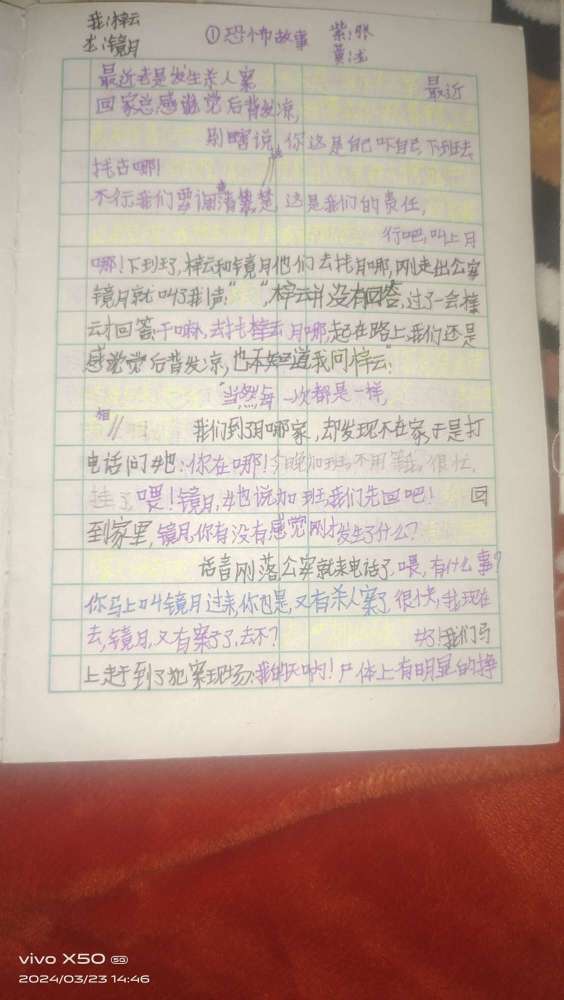 我:梓云 ①恐怖故事 紫:张
李:镜月 黄:李
最近老是发生杀人案 最近
回家总感觉后背发凉,
别瞎说,你这是自己吓自己,下班去
找古哪!
不行我们要调查清楚,这是我们的责任,
行吧,叫上月
哪!下到了,梓云和镜月他们去找月哪,刚走出公安
镜月就叫了我声:“ ”,梓云并没有回答,过了一会梓
云才回答:干嘛,去找 月哪,起在路上,我们还是
感觉后背发凉,也不知道,我问梓云:
“当然每一次都是一样,
我们到了月哪家,却发现不在家,于是打
电话问她:你在哪!今晚加班,不用等,很忙,
挂了,喂!镜月,她说加班,我们先回吧! 回
到家里,镜月,你有没有感觉刚才发生了什么?
话音刚落,公安就来电话了,喂,有什么事?
你马上叫镜月过来,你也是,又有杀人案了,很快,我现在
去,镜月,又有案子了,去不? 去!我们马
上赶到了犯案现场,我的天呐!尸体上有明显的挣
vivo X50 5G
2024/03/23 14:46